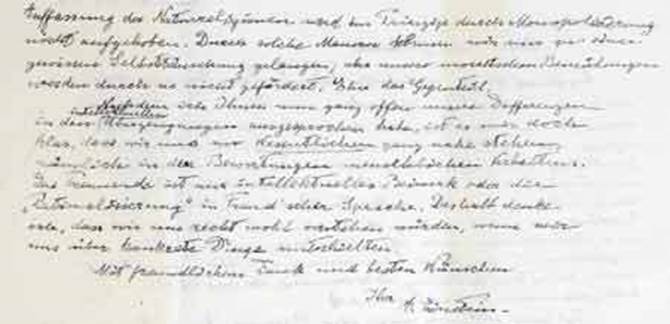 Auffassung des Naturreligiösen und im Prinzip durch Monopolisierung
nicht aufgehoben. Durch solche Mauern können wir nur zu einer
gewissen Selbsttäuschung gelangen; aber unsere moralischen Bemühungen
werden durch sie nicht gefördert. Eher das Gegenteil.
Nachdem ich Ihnen nun ganz offen unsere Differenzen
in den intellektuellen Überzeugungen ausgesprochen habe, ist es mir doch
klar, dass wir uns im Wesentlichen ganz nahe stehen,
nämlich in den Bewertungen menschlichen Verhaltens.
Das Trennende ist nur intellektuelles Beiwerk oder die
„Rationalisierung" in Freud'scher Sprache. Deshalb denke
ich, dass wir uns recht wohl verstehen würden, wenn wir
uns über konkrete Dinge unterhielten.
Mit freundlichem Dank und besten Wünschen
Ihr A. Einstein.